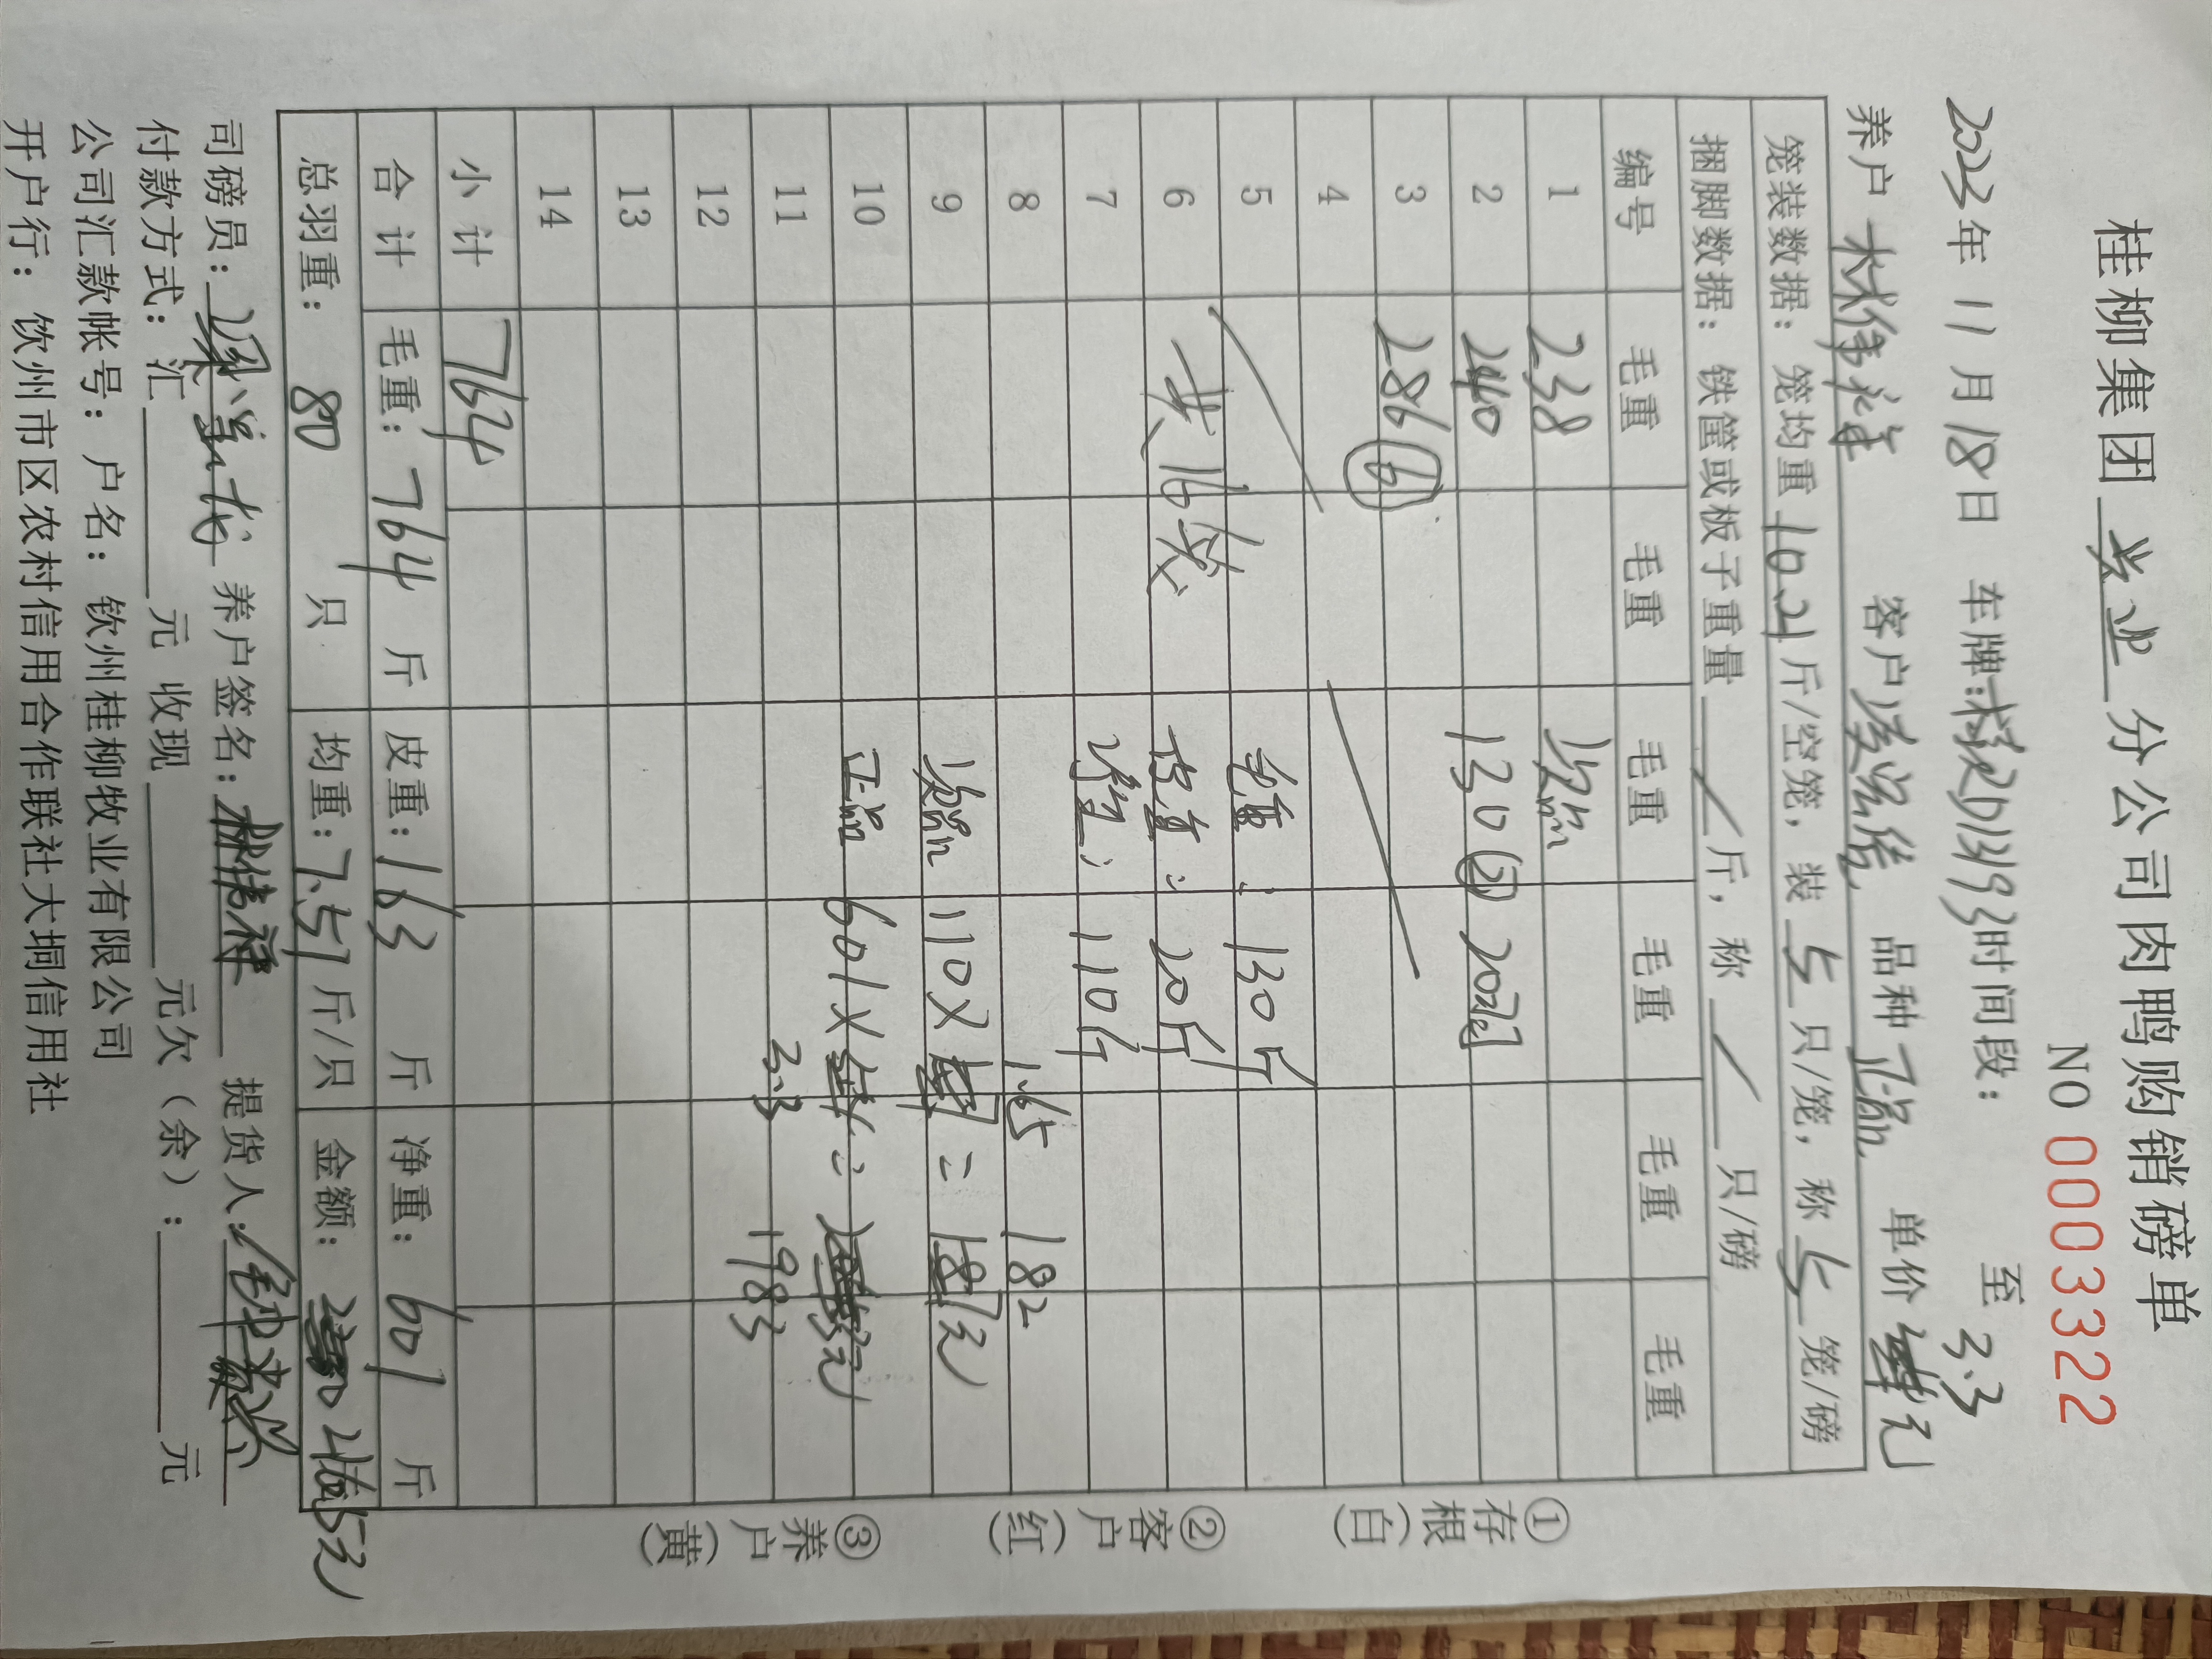 桂柳集团 兴业 分公司肉鸭购销磅单
NO 0003322
2023年 11月 18日 车牌:桂D13193时间段: 至
3.3
养户 林伟祥 客户 品种 正品 单价 元
笼装数据: 笼均重 10.21 斤/空笼, 装 5 只/笼, 称 5 笼/磅
捆脚数据: 铁筐或板子重量 / 斤, 称 / 只/磅
编号 毛重 毛重 毛重 毛重 毛重 毛重
1 238 次品
2 240 130 ② 20只
3 286 ⑥
4
5 毛重: 130斤
6 共16笼 皮重: 20斤
7 净重: 110斤
8 1.65 182
9 次品 110X = 元
10 正品 601X = 元
11 3.3 1983
12
13
14
小计 764
合计 毛重: 764 斤 皮重: 163 斤 净重: 601 斤
总羽重: 80 只 均重: 7.51 斤/只 金额: 2165元
司磅员: 养户签名: 林伟祥 提货人:
付款方式: 汇 元 收现 元欠(余): 元
公司汇款帐号: 户名: 钦州桂柳牧业有限公司
开户行: 钦州市区农村信用合作联社大垌信用社
①存根(白)
②客户(红)
③养户(黄)